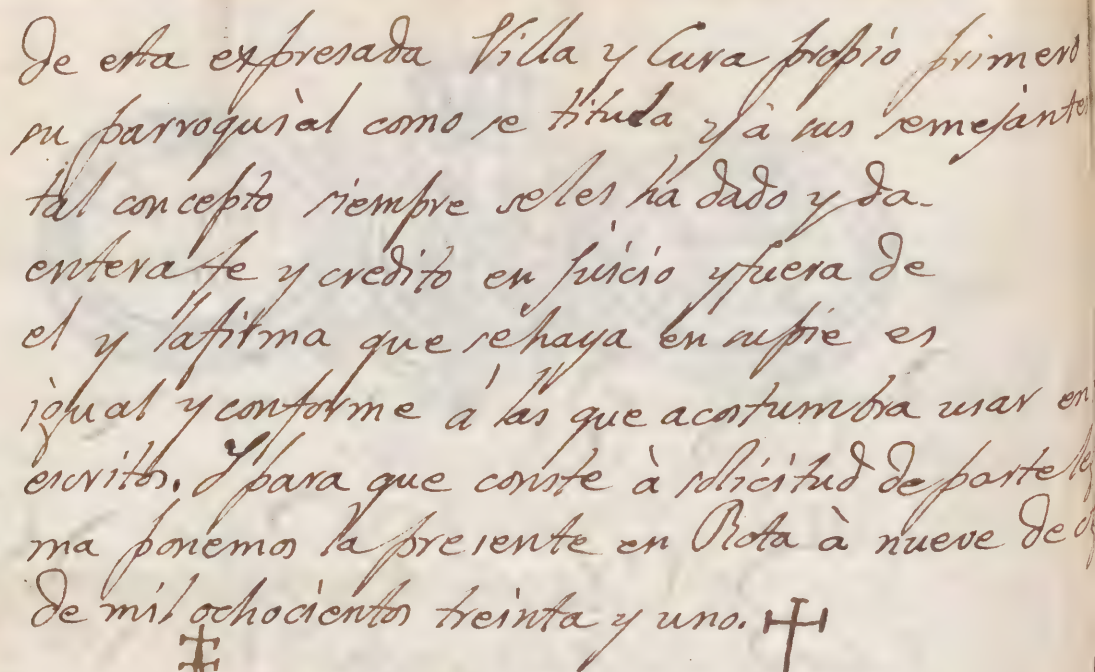 de esta expresada Villa y Cura propio primero
su parroquiàl como se titula y à sus semejantes
tal concepto siempre seles ha dado y da
entera fe y credito en juicio y fuera de
el y lafirma que sehaya en supie es
igual y conforme à las que acostumbra usar en
escritos. Y para que conste à solicitud de parte
ma ponemos la presente en Rota à nueve de
de mil ochocientos treinta y uno.